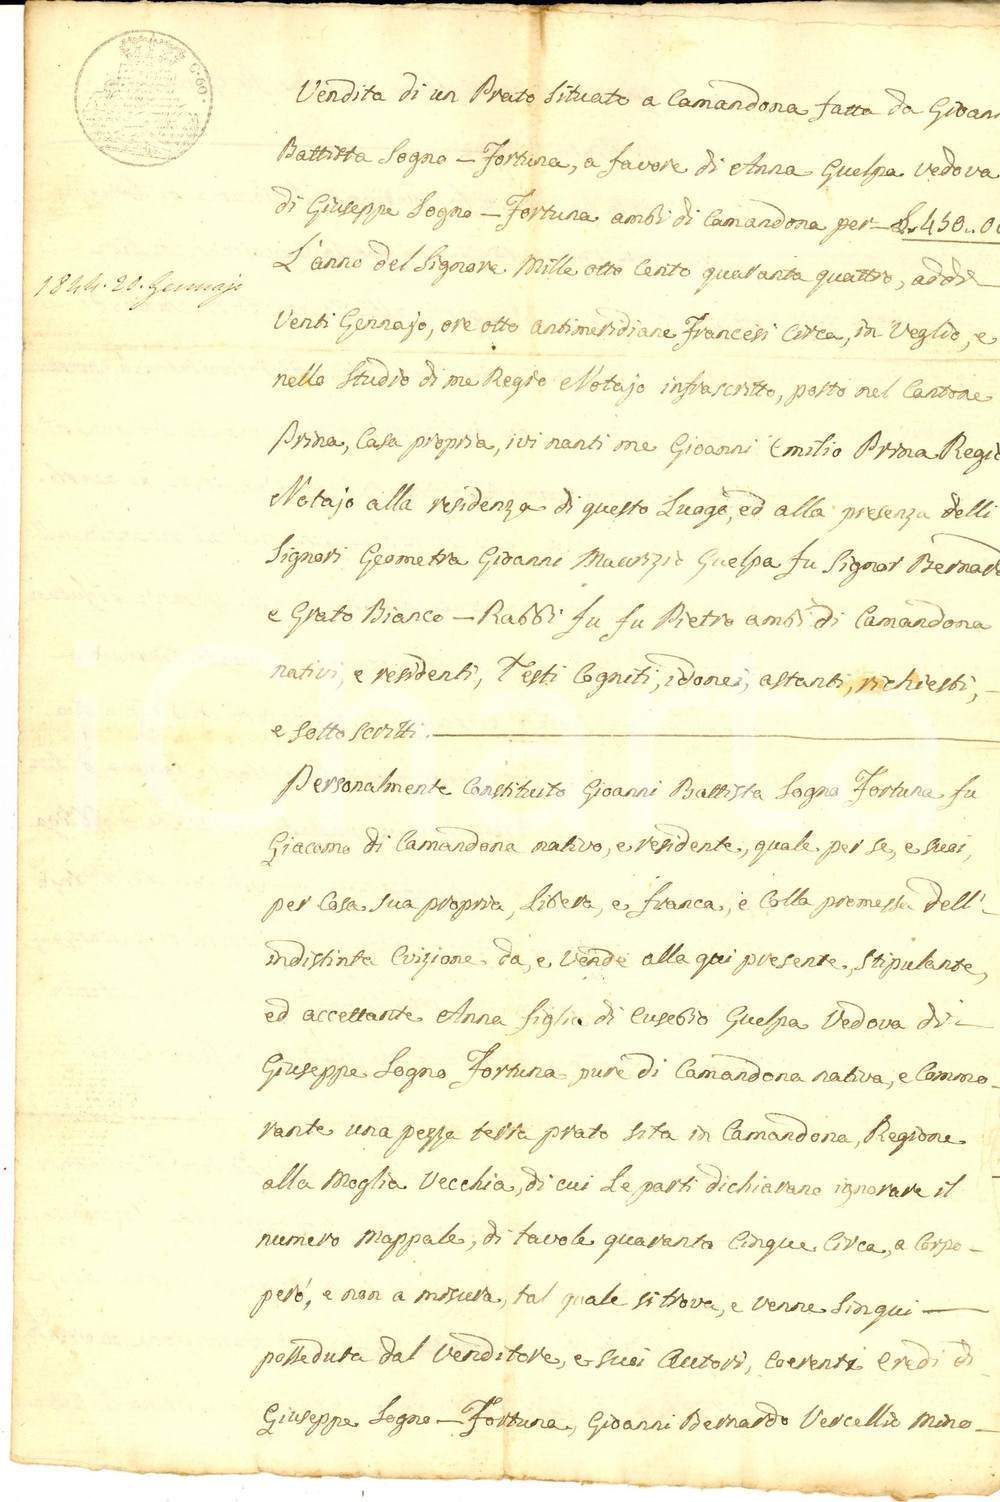 C. 60.
Vendita di un Prato situato a Camandona fatta da Gioani
Battista Sogno – Fortuna, a favore di Anna Guelpa vedova
di Giuseppe Sogno – Fortuna ambi di Camandona per – L. 450.. 00
1844. 20. Gennajo
L'anno del Signore Mille otto Cento quaranta quattro, addì –
Venti Gennajo, ore otto antimeridiane Francesi Circa, in Veglio, e
nello Studio di me Regio Notajo infrascritto, posto nel Cantone
Prina, Casa propria, ivi nanti me Gioanni Emilio Prina Regio
Notajo alla residenza di questo Luogo, ed alla presenza delli
Signori Geometra Gioanni Maurizio Guelpa fu Signor Bernardo
e Grato Bianco – Rabbi fu fu Pietro ambi di Camandona
nativi, e residenti, Testi Cogniti, idonei, astanti, richiesti, –
e sottoscritti. –
Personalmente Constituito Gioanni Battista Sogno Fortuna fu
Giacomo di Camandona nativo, e residente, quale per se, e suoi,
per Cosa sua propria, libera, e franca, e Colla promessa dell' –
indistinta Evizione da, e Vende alla qui presente, Stipulante,
ed accettante Anna figlia di Eusebio Guelpa Vedova di –
Giuseppe Sogno Fortuna pure di Camandona nativa, e Commo –
rante una pezza terra prato sita in Camandona, Regione
alla Moglia Vecchia, di cui Le parti dichiarano ignorare il
numero Mappale, di tavole quaranta Cinque Circa, a Corpo –
però, e non a misura, tal quale si trova, e venne Sinqui –
posseduta dal Venditore, e suoi Autori, Coerenti Eredi di
Giuseppe Sogno – Fortuna, Gioanni Bernardo Vercellio Mino –